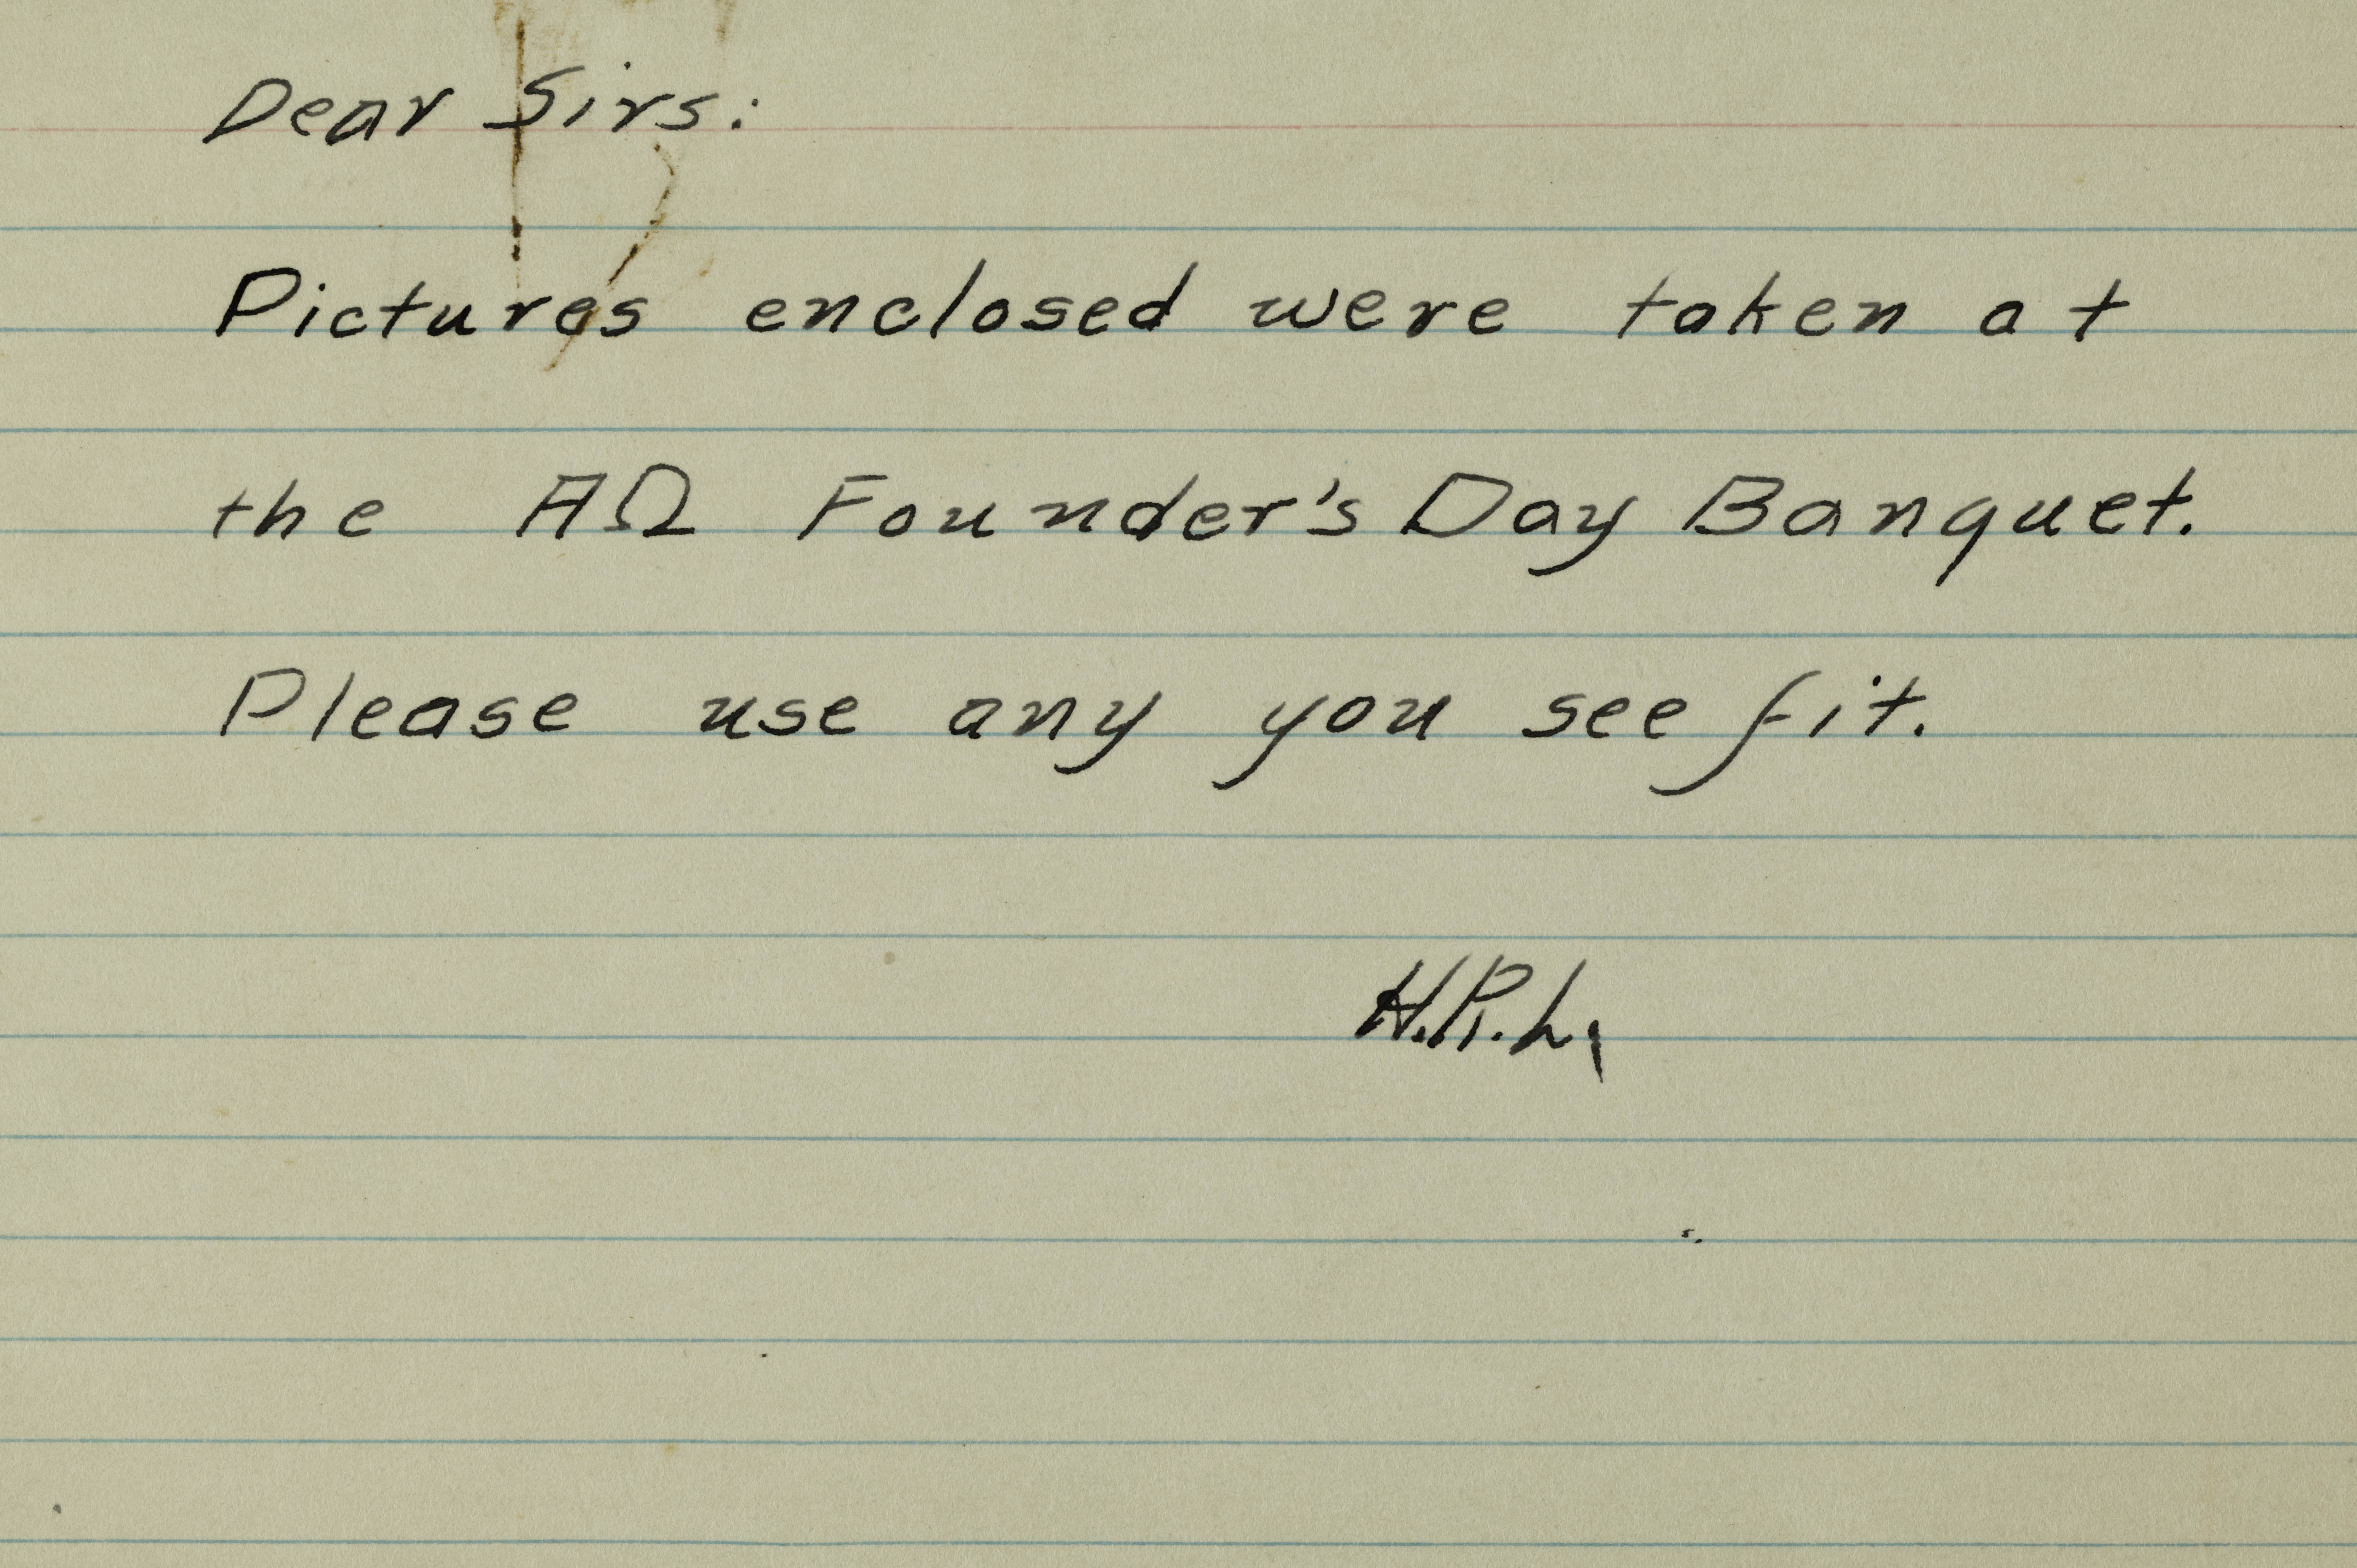 Dear Sirs:
Pictures enclosed were taken at
the AΩ Founder's Day Banquet.
Please use any you see fit.
H.P.L.